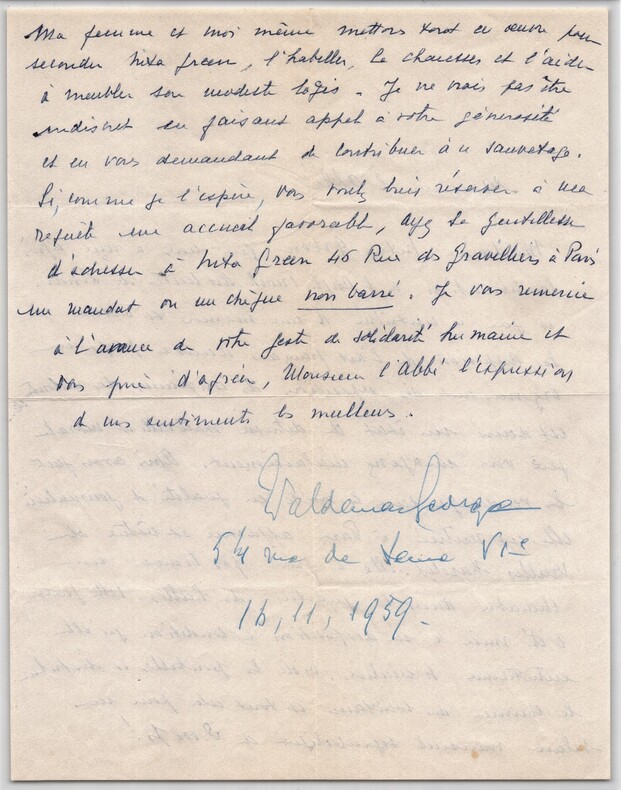 Ma femme et moi même mettons tout en œuvre pour
seconder Nixa Green, l'habiller, la chausser et l'aider
à meubler son modeste logis. Je ne crois pas être
indiscret en faisant appel à votre générosité
et en vous demandant de contribuer à ce sauvetage.
Si, comme je l'espère, vous voulez bien réserver à ma
requête un accueil favorable, ayez la gentillesse
d'adresser à Nixa Green 45 Rue des Gravilliers à Paris
un mandat ou un chèque non barré. Je vous remercie
à l'avance de votre geste de solidarité humaine et
vous prie d'agréer, Monsieur l'Abbé l'expression
de mes sentiments les meilleurs.
Waldemar George
54 rue de Seine VIe
16, 11, 1959.